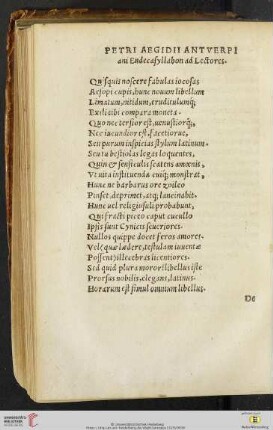 PETRI AEGIDII ANTVERPI
ani Endecasyllabon ad Lectores.
Quisquis noscere fabulas iocosas
Aesopi cupis, hunc nouum libellum
Limatum, nitidum, eruditulumq;
Exili tibi compara moneta.
Quo nec tersior est, uenustiorq;,
Nec iucundior est, facetiorue,
Seu purum inspicias stylum latinum.
Seu tu bestiolas legas loquentes,
Quin & sensiculis scatens amœnis,
Ut uita instituenda cuiq; monstrat,
Hunc ne barbarus ore zoilco
Pinset, deprimet, atq; lancinabit.
Hunc uel religiosuli probabunt,
Qui fracti piceo caput cucullo
Ipsis sunt Cynicis seueriores.
Nullos quippe docet feros amores.
Vel quæ lædere, testulam iuuentæ
Possent, illecebras licentiores.
Sed quid plura moror? libellus iste
Prorsus nobilis, elegans, latinus.
Horarum est simul omnium libellus.
De